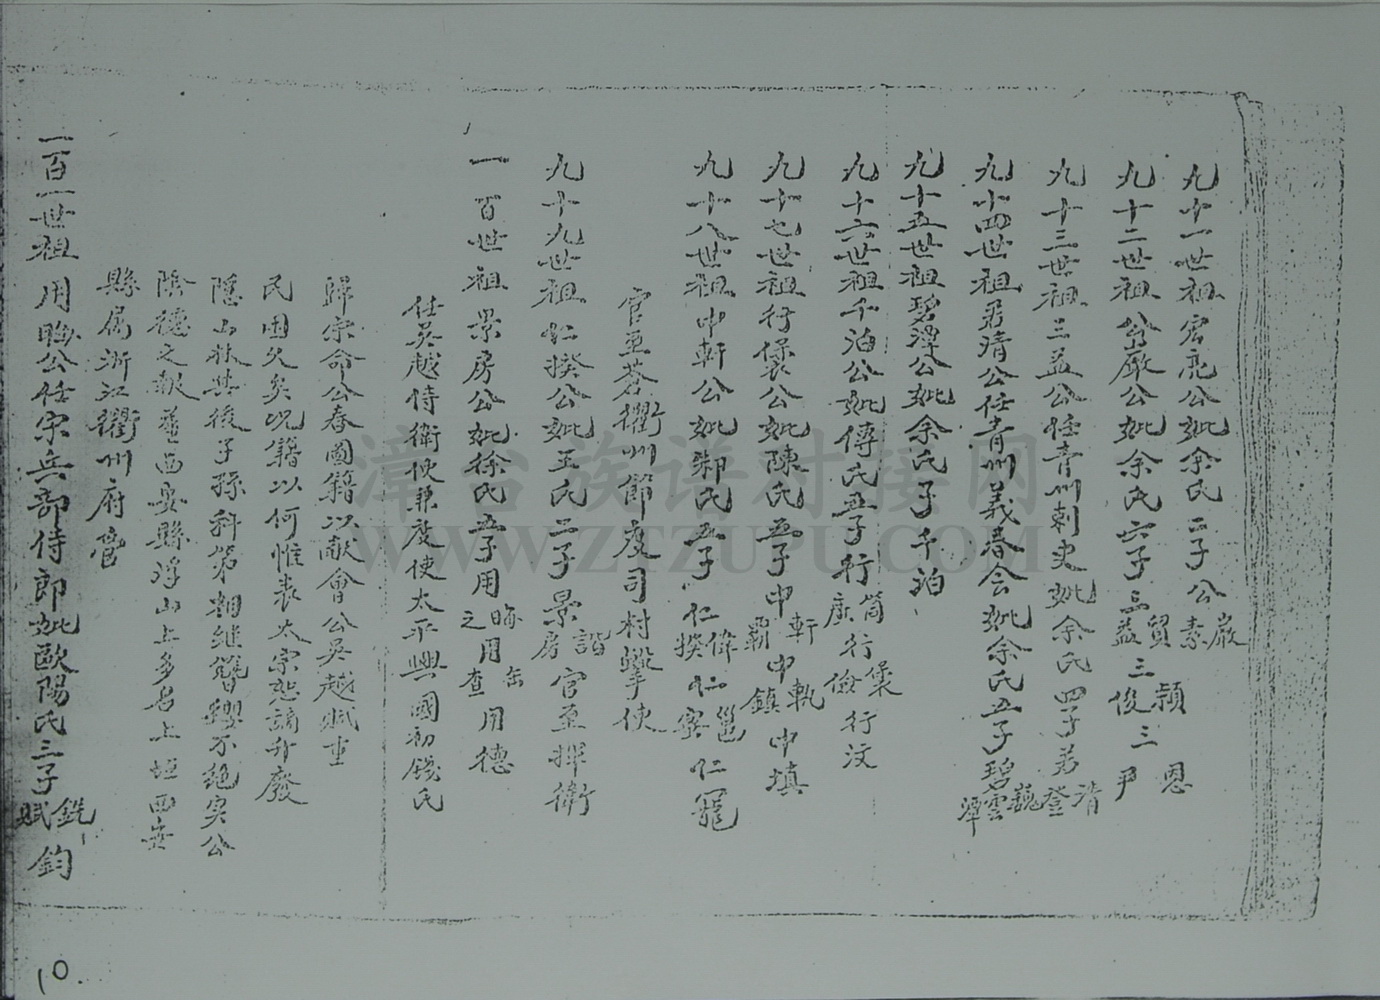 九十一世祖宏亮公妣余氏二子公嚴素
九十二世祖公嚴公妣余氏六子三貿益三穎俊三恩尹
九十三世祖三益公任青州刺史妣余氏四子君清登
九十四世祖君清公任青州義春令妣余氏五子碧巍雲潭
九十五世祖碧潭公妣余氏子千泊
九十六世祖千泊公妣傅氏五子行筒廣行儓儉行汶
九十七世祖行儓公妣陳氏五子中軒霸中軌鎮中填
九十八世祖中軒公妣鄭氏五子仁偉揆仁邕寀仁寵
官至蒼衢州節度司村擊使
九十九世祖仁揆公妣王氏二子景諧房官至揮衛
一百世祖景房公妣徐氏五子用晦之用缶查用德
任吳越侍衛使兼度使太平興國初錢氏
歸宗命公春圖籍以献會公吳越賦重
民困久矣况籍以何惟表太宗怒謫升廢
隱山林其後子孫科第相继簪纓不絕实公
陰德之報葬西安縣浮山上多名上垣西安
縣属浙江衢州府管
一百一世祖用晦公任宋兵部侍郎妣歐陽氏三子銑賦鈞
10.
漳台族谱对接网
WWW.ZTZUPU.COM